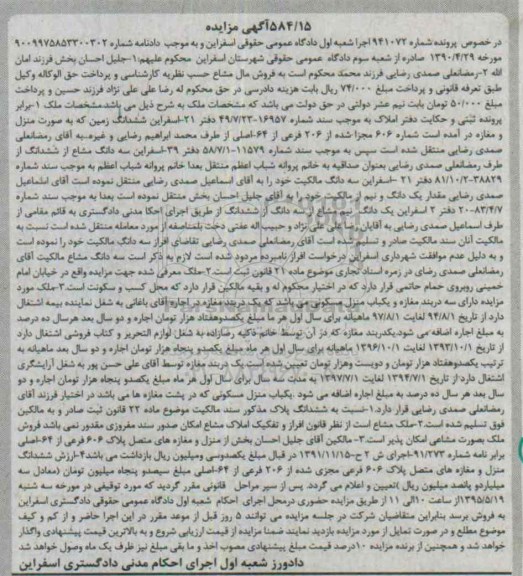 ۵۸۴/۱۵آگهی مزایده
در خصوص پرونده شماره ۹۴۱۰۷۲ اجرا شعبه اول دادگاه عمومی حقوقی اسفراین و به موجب دادنامه شماره ۹۰۰۹۹۷۵۸۵۳۳۰۰۳۰۲
مورخه ۱۳۹۰/۴/۲۹ صادره از شعبه سوم دادگاه عمومی حقوقی شهرستان اسفراین محکوم علیهم:۱-جلیل احسان بخش فرزند امان
الله ۲-رمضانعلی صمدی رضایی فرزند محمد محکوم است به فروش مال مشاع حسب نظریه کارشناسی و پرداخت حق الوکاله وکیل
طبق تعرفه قانونی و پرداخت مبلغ ۷۴/۰۰۰ ریال بابت هزینه دادرسی در حق محکوم له رضا علی علی نژاد فرزند حسین و پرداخت
مبلغ ۵۰/۰۰۰ تومان بابت نیم عشر دولتی در حق دولت می باشد که مشخصات ملک به شرح ذیل می باشد.مشخصات ملک ۱-برابر
پرونده ثبتی و حکایت دفتر املاک به موجب سند شماره ۱۶۹۵۷-۴۹/۷/۲۳ دفتر ۲۱-اسفراین ششدانگ زمین که به صورت منزل
و مغازه در آمده است شماره ۶۰۶ مجزا شده از ۲۰۶ فرعی از ۶۴-اصلی از طرف محمد ابراهیم رضایی و غیره-به آقای رمضانعلی
صمدی رضایی منتقل شده است سپس به موجب سند شماره ۱۱۵۷۹-۵۸/۷/۱ دفتر ۳۹-اسفراین سه دانگ مشاع از ششدانگ از
طرف رمضانعلی صمدی رضایی بعنوان صداقیه به خانم پروانه شباب اعظم منتقل بعدا خانم پروانه شباب اعظم به موجب سند شماره
۳۸۸۲۹-۸۱/۱۰/۲ دفتر ۲۱ -اسفراین سه دانگ مالکیت خود را به آقای اسماعیل صمدی رضایی منتقل نموده است آقای اسماعیل
صمدی رضایی مقدار یک دانگ و نیم از مالکیت خود را به آقای جلیل احسان بخش منتقل نموده است بعدا به موجب سند شماره
۲۰-۸۳/۴/۷ دفتر ۲ اسفراین یک دانگ و نیم مشاع از سه دانگ از ششدانگ از طریق اجرای احکا مدنی دادگستری به قائم مقامی از
طرف اسماعیل صمدی رضایی به آقایان رضا علی علی نژاد و حبیب اله عفتی دخت بلمناصفه از مورد معامله منتقل شده است نسبت به
مالکیت آنان سند مالکیت صادر و تسلیم شده است آقای رمضانعلی صمدی رضایی تقاضای افراز سه دانگ مالکیت خود را نموده است
و به دلیل عدم موافقت شهرداری اسفراین درخواست افراز نامبرده مردود شده است لازم به ذکر است سه دانگ مشاع مالکیت آقای
رمضانعلی صمدی رضای در زمره اسناد تجاری موضوع ماده ۲۱ قانون ثبت است.۲-ملک معرفی شده جهت مزایده واقع در خیابان امام
خمینی روبروی حمام حاتمی قرار دارد که در اختیار محکوم له و بقیه مالکین قرار دارد که محل کسب و سکونت است.۳-ملک مورد
مزایده دارای سه دربند مغازه و یکباب منزل مسکونی می باشد که یک دربند مغازه در اجاره آقای باغانی به شغل نماینده بیمه اشتغال
دارد از تاریخ ۹۴/۸/۱ لغایت ۹۷/۸/۱ ماهیانه برای سال اول هر ماه مبلغ یکصدوهفتاد هزار تومان اجاره و دو سال بعد هرسال ده درصد
به مبلغ اجاره اضافه می شود.یکدربند مغازه که در آن توسط خانم ذکیه رضازاده به شغل لوازم التحریر و کتاب فروشی اشتغال دارد
از تاریخ ۱۳۹۳/۱۰/۱ لغایت ۱۳۹۶/۱۰/۱ ماهیانه برای سال اول هر ماه مبلغ یکصد و پنجاه هزار تومان اجاره و دو سال بعد ماهیانه به
ترتیب یکصدوهفتاد هزار تومان و دویست وهزار تومان تعیین شده است.یک دربند مغازه توسط آقای علی حسن پور به شغل آرایشگری
اشتغال دارد از تاریخ ۱۳۹۴/۷/۱ لغایت ۱۳۹۷/۷/۱ به مدت سه سال برای سال اول هر ماه مبلغ یکصدو پنجاه هزار تومان اجاره و دو
سال بعد هر سال ده درصد به مبلغ اجاره اضافه می شود .یکباب منزل مسکونی که در پشت مغازه ها می باشد در اختیار فرزند آقای
رمضانعلی صمدی رضایی قرار دارد.۱-نسبت به ششدانگ پلاک مذکور سند مالکیت موضوع ماده ۲۲ قانون ثبت صادر و به مالکین
فوق تسلیم شده است.۲-ملک مشاع است از نظر قانون افراز و تفکیک املاک مشاع امکان صدور سند مفروزی مقدور نمی باشد فروش
ملک بصورت مشاعی امکان پذیر است.۳- مالکین آقای جلیل احسان بخش از منزل و مغازه های متصل پلاک ۶۰۶ فرعی از ۶۴-اصلی
برابر نامه شماره ۹۱/۲۷۳-اجرای ش ۲ ح-۱۳۹۱/۱۱/۱۵ در قبال مبلغ یکصدوسی ومیلیون ریال بازداشت می باشد۴-ارزش ششدانگ
منزل و مغازه های متصل پلاک ۶۰۶ فرعی مجزی شده از ۲۰۶ فرعی از ۶۴-اصلی مبلغ سیصدو پنجاه میلیون تومان (معادل سه
میلیاردو پانصد میلیون ریال )تعیین و اعلام می گردد. پس از سیر مراحل قانونی مقرر گردید که مورد توقیفی در مورخه سه شنبه
۱۳۹۵/۵/۱۹از ساعت ۱۰الی ۱۱ از طریق مزایده حضوری درمحل اجرای احکام شعبه اول دادگاه عمومی حقوقی دادگستری اسفراین
به فروش برسد بنابراین متقاضیان شرکت در جلسه مزایده می توانند ۵ روز قبل از موعد مقرر در این اجرا حاضر و از کم و کیف
موضوع مطلع و در صورت تمایل از مورد مزایده بازدید نمایند ضمنا مزایده از قیمت ارزیابی شروع و به بالاترین قیمت پیشنهادی واگذار
خواهد شد و همچنین از برنده مزایده ۱۰درصد قیمت مبلغ پیشنهادی مصوب اخذ و ما بقی مبلغ نیز ظرف یک ماه وصول خواهد شد
دادورز شعبه اول اجرای احکام مدنی دادگستری اسفراین